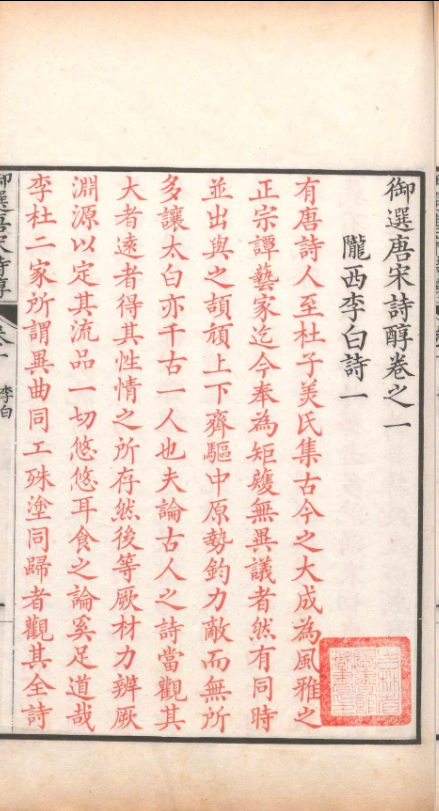 御選唐宋詩醇卷之一
隴西李白詩一
有唐詩人至杜子美氏集古今之大成為風雅之
正宗譚藝家迄今奉為矩矱無異議者然有同時
並出與之頡頏上下齊驅中原勢鈞力敵而無所
多讓太白亦千古一人也夫論古人之詩當觀其
大者遠者得其性情之所存然後等厥材力辨厥
淵源以定其流品一切悠悠耳食之論奚足道哉
李杜二家所謂異曲同工殊塗同歸者觀其全詩
御選唐宋詩醇
卷一
李白